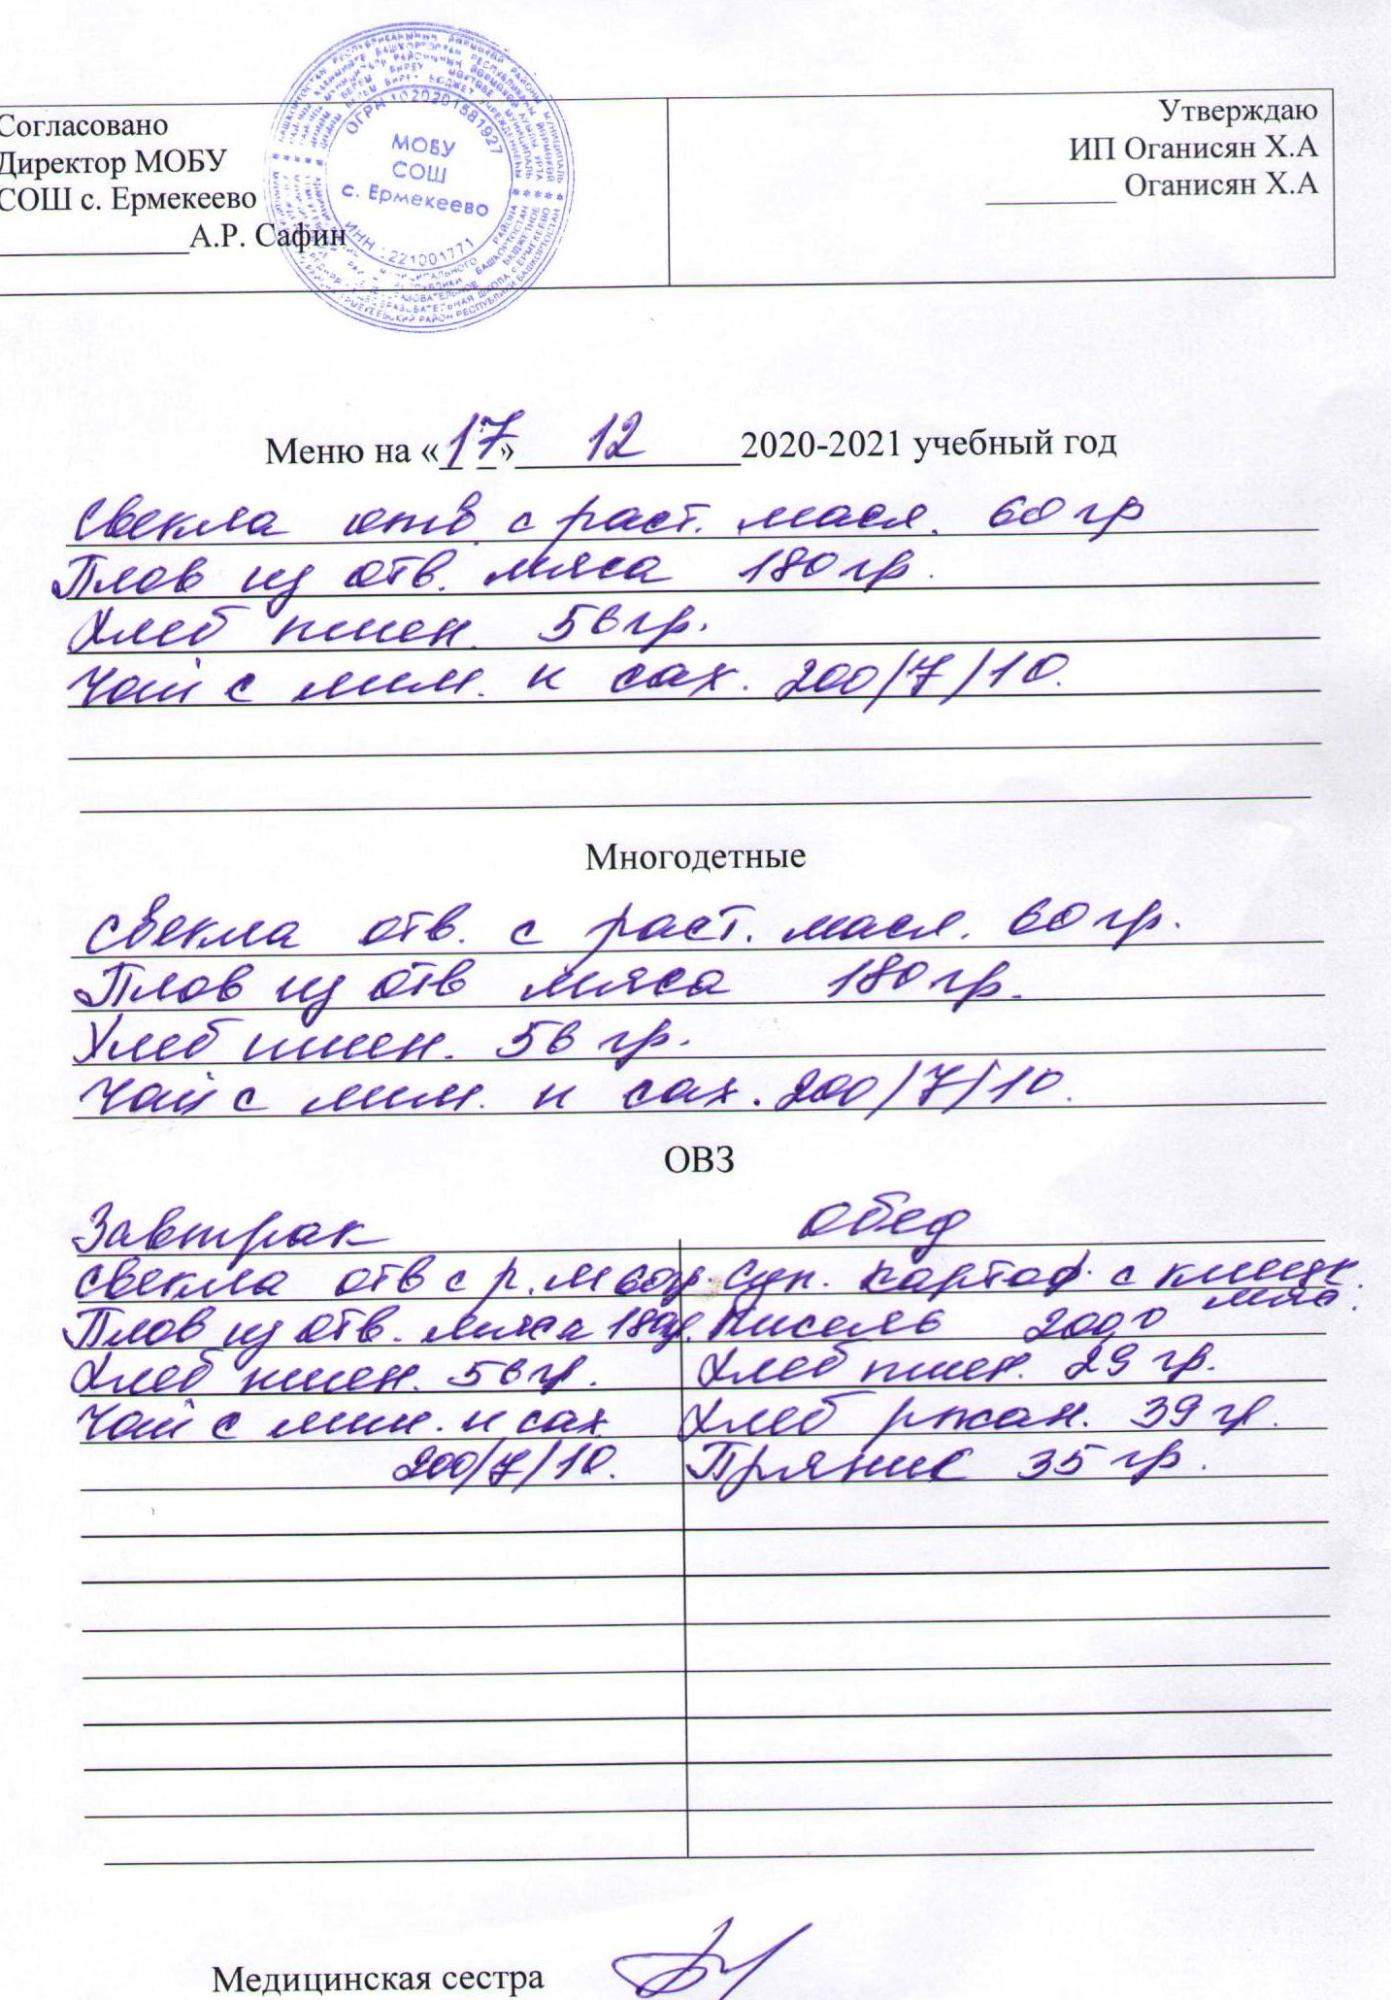 Согласовано
Директор МОБУ
СОШ с. Ермекеево
А.Р. Сафин
ОГРН 1020201581927
МОБУ
СОШ
с. Ермекеево
ИНН 221001771
Утверждаю
ИП Оганисян Х.А
_________ Оганисян Х.А
Меню на «17» 12 2020-2021 учебный год
Свекла отв. с раст. масл. 60 гр
Плов из отв. мяса 180 гр.
Хлеб пшен. 56 гр.
Чай с лим. и сах. 200/7/10.
Многодетные
Свекла отв. с раст. масл. 60 гр.
Плов из отв мяса 180 гр.
Хлеб пшен. 56 гр.
Чай с лим. и сах. 200/7/10.
ОВЗ
Завтрак
Свекла отв с р. м 60гр.
Плов из отв. мяса 180гр.
Хлеб пшен. 56 гр.
Чай с лим. и сах
200/7/10.
Обед
Суп. картоф. с
мяс.
Кисель 200,0
Хлеб пшен. 29 гр.
Хлеб ржан. 39 гр.
Пряник 35 гр.
Медицинская сестра